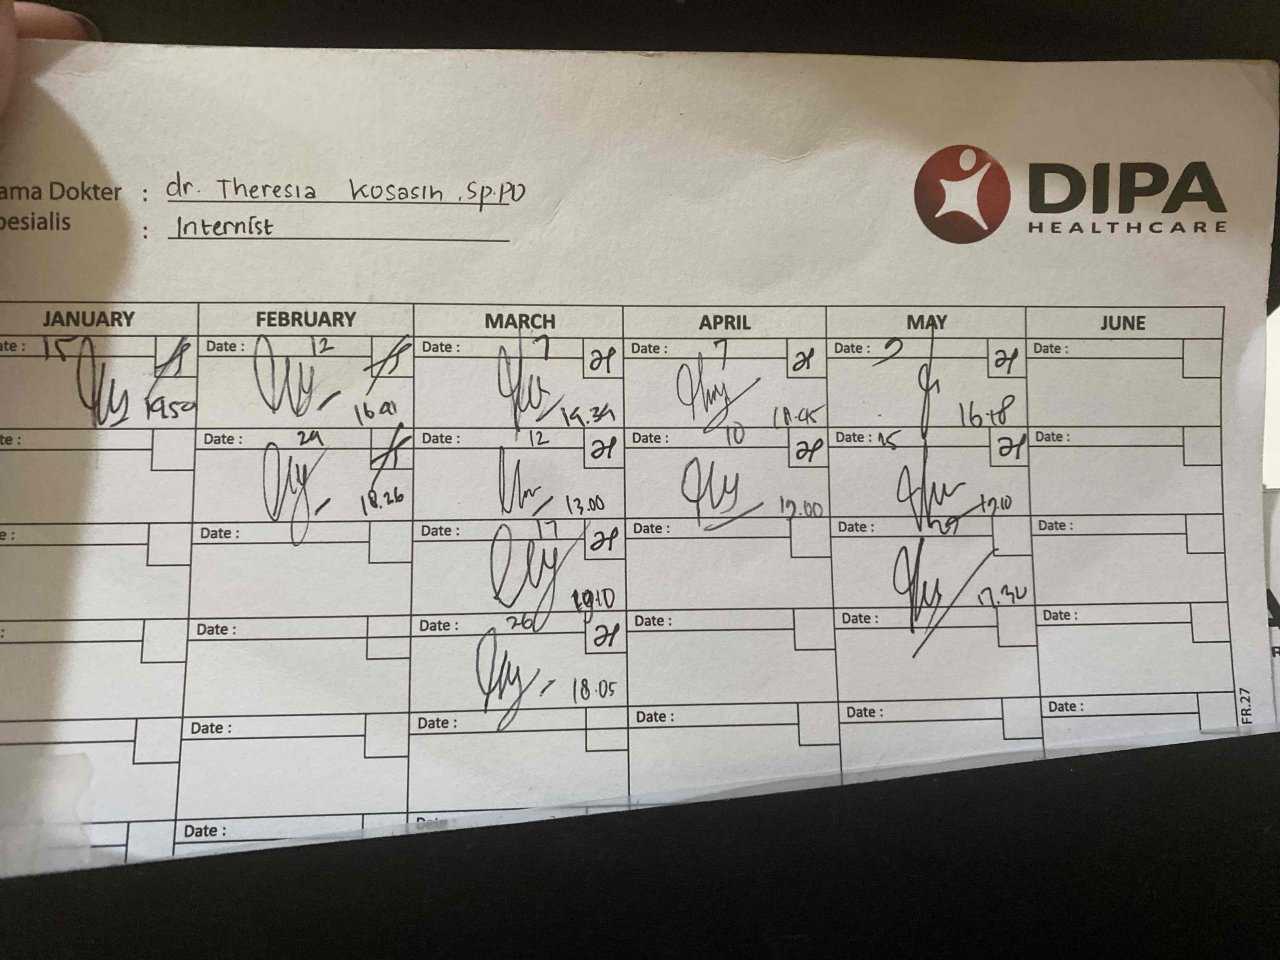 ama Dokter : dr. Theresia Kosasih, Sp.PD
pesialis : Internist
DIPA
HEALTHCARE
JANUARY FEBRUARY MARCH APRIL MAY JUNE
ate: 15 Date: 12 Date: 7 Date: 7 Date: Date:
19.50 16.01 19.39 16.48
te: Date: 29 Date: 12 Date: 10 Date: 15 Date:
18.26 13.00 17.00 17.10
e: Date: Date: 17 Date: Date: 29 Date:
17.30
: Date: Date: 26 Date: Date: Date:
18.05
Date: Date: Date: Date: Date:
Date: Date:
FR.27